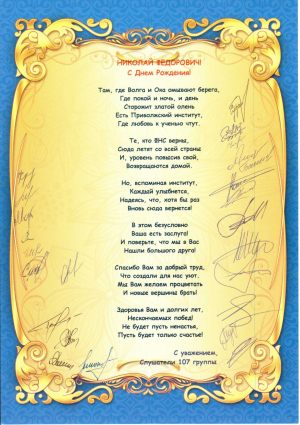 НИКОЛАЙ ФЕДОРОВИЧ!
С Днем Рождения!
Там, где Волга и Ока омывают берега,
Где покой и ночь, и день
Сторожит златой олень
Есть Приволжский институт,
Где любовь к ученью чтут.
Те, кто ФНС верны,
Сюда летят со всей страны
И, уровень повысив свой,
Возвращаются домой.
Но, вспоминая институт,
Каждый улыбнется,
Надеясь, что, хотя бы раз
Вновь сюда вернется!
В этом безусловно
Ваша есть заслуга!
И поверьте, что мы в Вас
Нашли большого друга!
Спасибо Вам за добрый труд,
Что создали для нас уют.
Мы Вам желаем процветать
И новые вершины брать!
Здоровья Вам и долгих лет,
Нескончаемых побед!
Не будет пусть ненастья,
Пусть будет только счастье!
С уважением,
Слушатели 107 группы